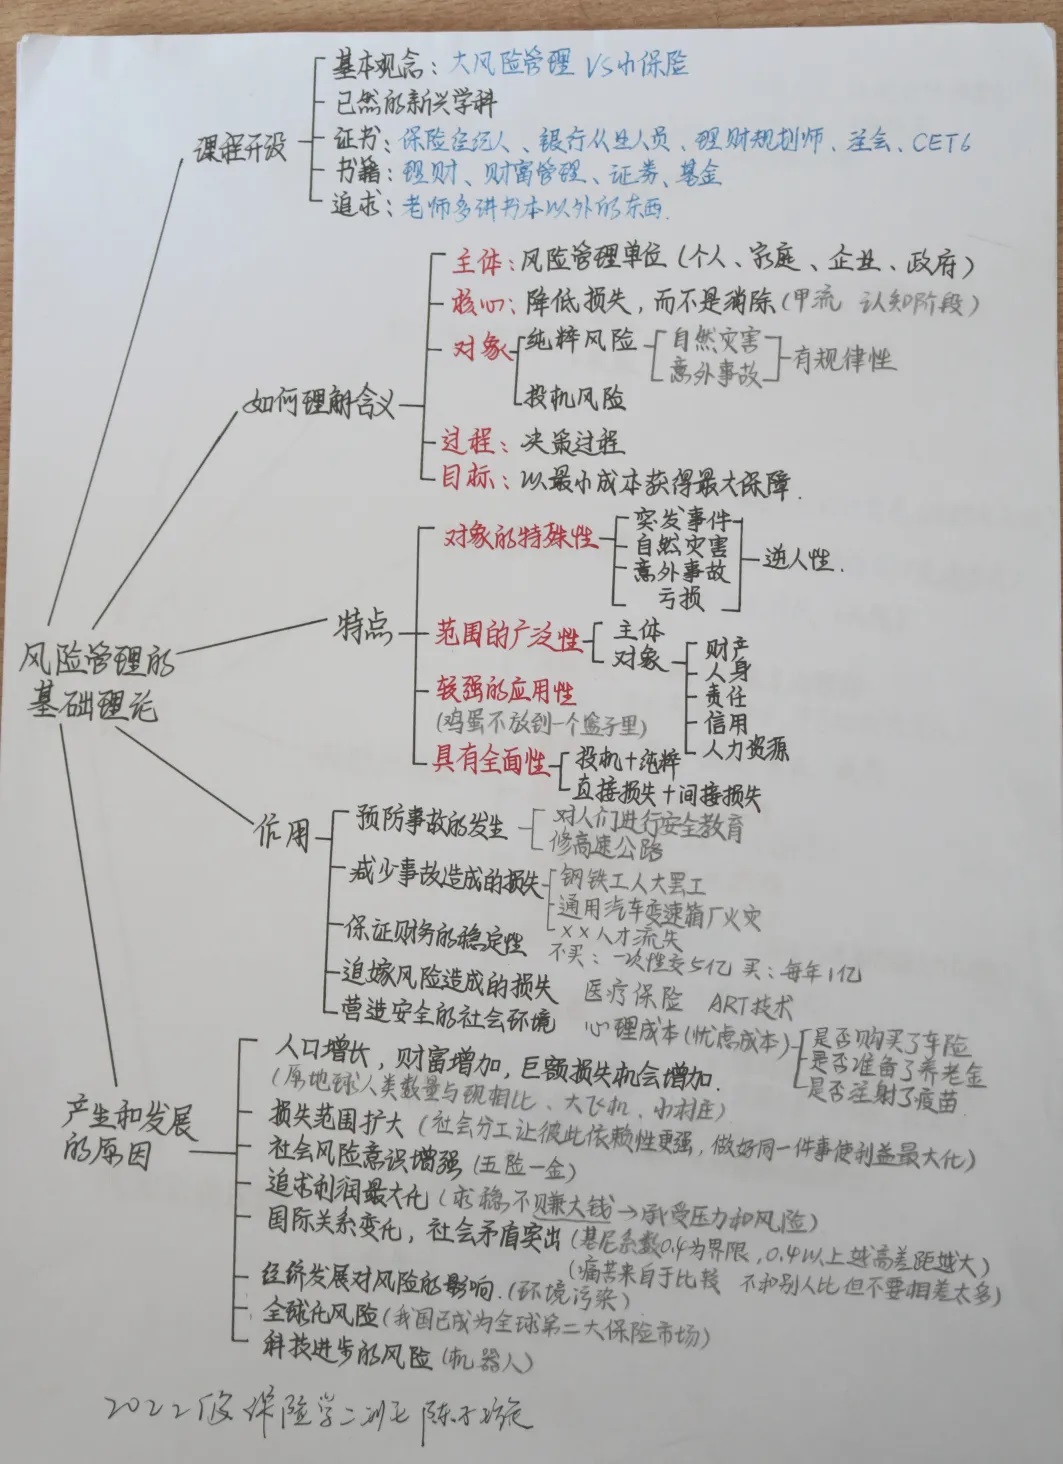 基本观念：大风险管理 VS 小保险
已然的新兴学科
课程开设
证书：保险经纪人、银行从业人员、理财规划师、注会、CET6
书籍：理财、财富管理、证券、基金
追求：老师多讲书本以外的东西.
主体：风险管理单位（个人、家庭、企业、政府）
核心：降低损失，而不是消除（甲流 认知阶段）
对象 纯粹风险 自然灾害
意外事故 有规律性
投机风险
如何理解含义
过程：决策过程
目标：以最小成本获得最大保障.
对象的特殊性 突发事件
自然灾害
意外事故
亏损
逆人性.
特点
范围的广泛性 主体
对象 财产
人身
责任
信用
人力资源
较强的应用性
（鸡蛋不放到一个篮子里）
具有全面性 投机+纯粹
直接损失+间接损失
风险管理的
基础理论
作用
预防事故的发生 对人们进行安全教育
修高速公路
减少事故造成的损失 钢铁工人大罢工
通用汽车变速箱厂火灾
××人才流失
保证财务的稳定性 不买：一次性交5亿 买：每年1亿
追嫁风险造成的损失 医疗保险 ART技术
营造安全的社会环境 心理成本（忧虑成本） 是否购买了车险
是否准备了养老金
是否注射了疫苗
产生和发展
的原因
人口增长，财富增加，巨额损失机会增加.
（原地球人类数量与现相比、大飞机、小村庄）
损失范围扩大（社会分工让彼此依赖性更强，做好同一件事使利益最大化）
社会风险意识增强（五险一金）
追求利润最大化（求稳不赚大钱→承受压力和风险）
国际关系变化，社会矛盾突出（基尼系数0.4为界限，0.4以上越高差距越大）
（痛苦来自于比较 不和别人比但不要相差太多）
经济发展对风险的影响.（环境污染）
全球化风险（我国已成为全球第二大保险市场）
科技进步的风险（机器人）
2022级保险学二班 陈